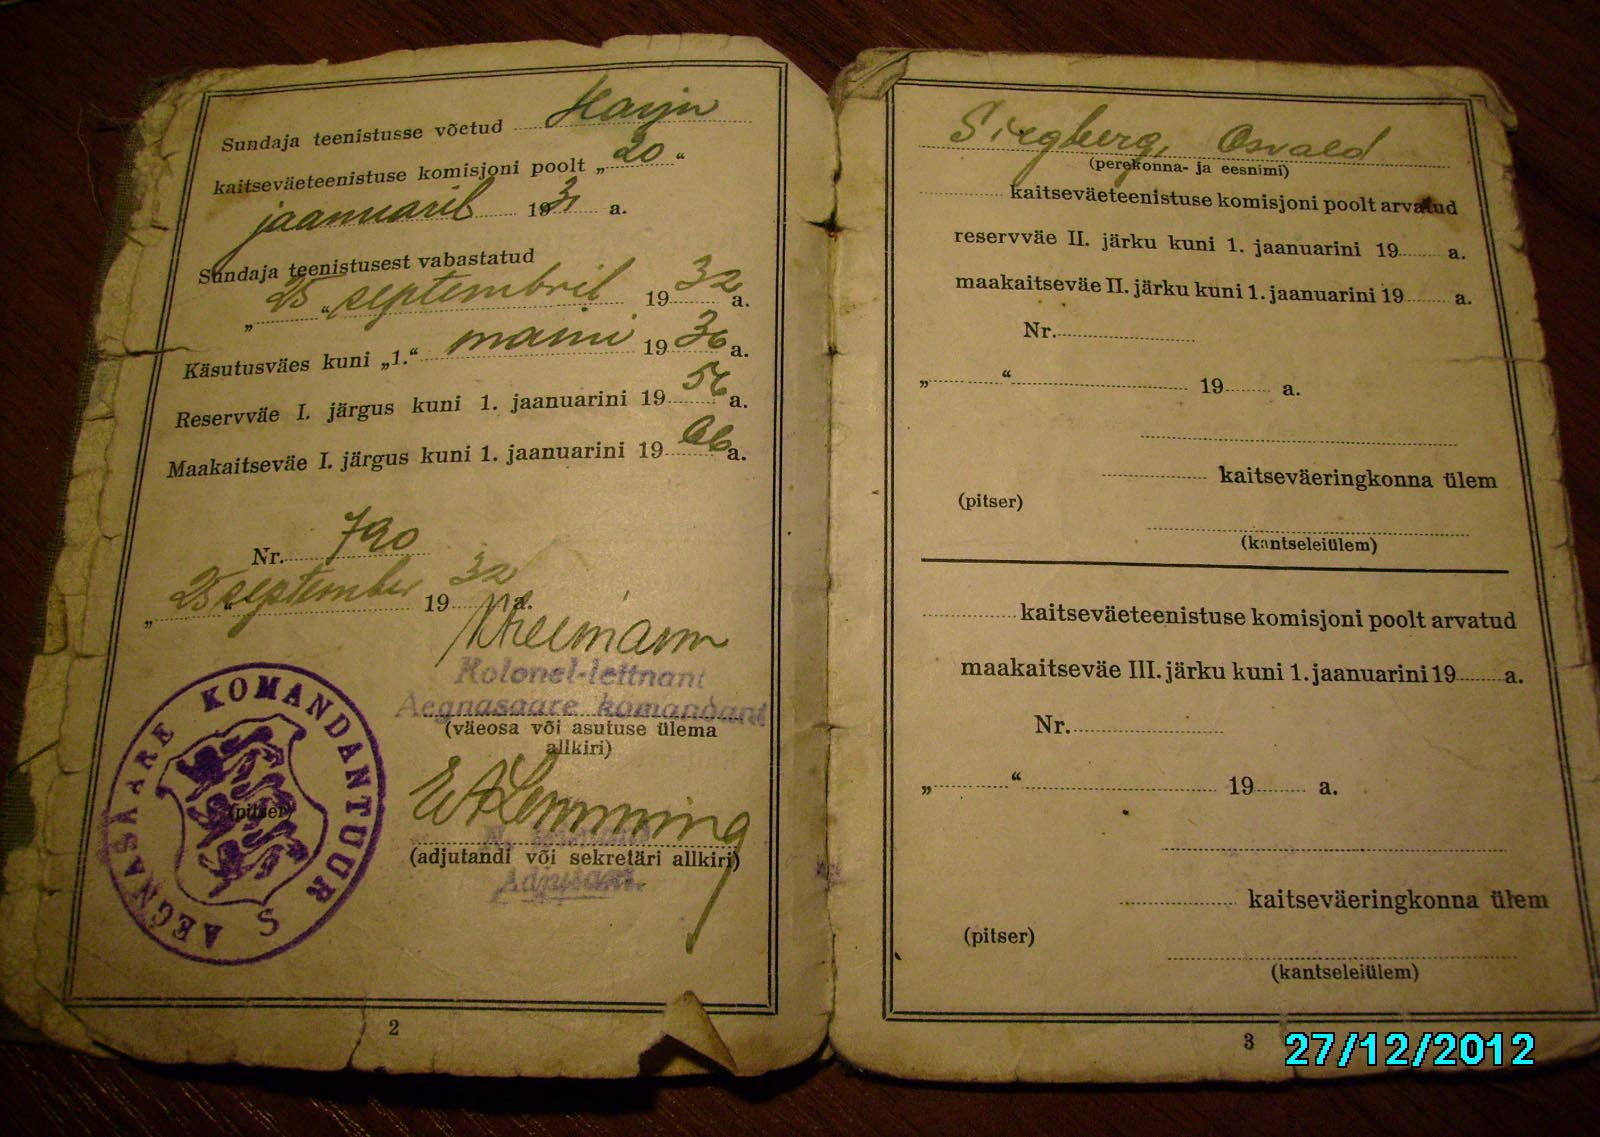 Sundaja teenistusse võetud Harju
kaitseväeteenistuse komisjoni poolt „20“
jaanuaril 1931 a.
Sundaja teenistusest vabastatud
„25“ septembril 1932 a.
Käsutusväes kuni „1.“ maini 1936 a.
Reservväe I. järgus kuni 1. jaanuarini 1956 a.
Maakaitseväe I. järgus kuni 1. jaanuarini 1966 a.
Nr. 790
„25“ september 1932 a.
Kolonel-leitnant
Aegnasaare komandant
(väeosa või asutuse ülema
allkiri)
AEGNASAARE KOMANDANTUUR S
(pitser)
(adjutandi või sekretäri allkiri)
Adjutant.
2
Siegberg, Osvald
(perekonna- ja eesnimi)
kaitseväeteenistuse komisjoni poolt arvatud
reservväe II. järku kuni 1. jaanuarini 19 a.
maakaitseväe II. järku kuni 1. jaanuarini 19 a.
Nr.
„ “ 19 a.
kaitseväeringkonna ülem
(pitser)
(kantseleiülem)
kaitseväeteenistuse komisjoni poolt arvatud
maakaitseväe III. järku kuni 1. jaanuarini 19 a.
Nr.
„ “ 19 a.
kaitseväeringkonna ülem
(pitser)
(kantseleiülem)
3
27/12/2012